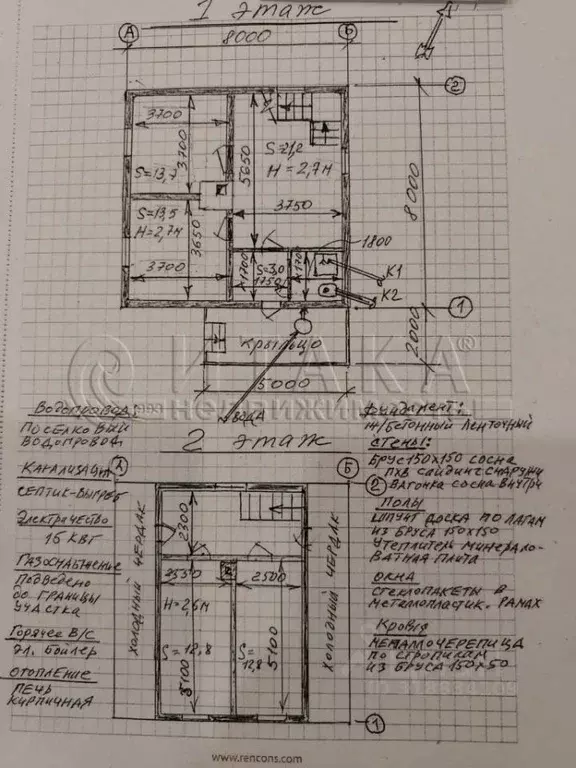 1 этаж
А
8000
Б
2
3700
3700
S=13,7
5650
S=21,2
H=2,7м
3750
8000
S=13,5
H=2,7м
3650
3700
1800
1700
S=3,0
1750
1700
К1
К2
1
Крыльцо
2000
5000
вода
ИТАКА®
недвижимость
2 этаж
Водопровод:
Поселковый
водопровод
Канализация
септик-выгреб
Электричество
15 кВт
Газоснабжение
подведено
до границы
участка
Горячее в/с
эл. бойлер
Отопление
печь
кирпичная
А
Б
2
2300
Холодный чердак
Холодный чердак
2550
2500
H=2,6м
S=12,8
5100
S=
12,8
5100
1
Фундамент:
ж/бетонный ленточный
Стены:
Брус 150х150 сосна
ПХВ сайдинг снаружи
Вагонка сосна внутри
Полы
шпунт доска по лагам
из бруса 150х150
утеплитель минерало-
ватная плита
Окна
стеклопакеты в
металлопластик. рамах
Кровля
металлочерепица
по стропилам
из бруса 150х50
www.rencons.com